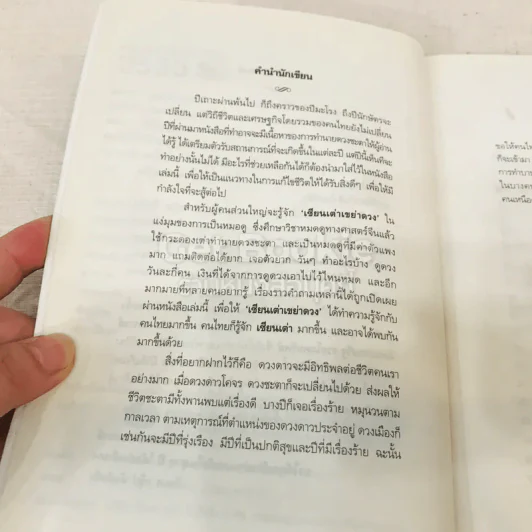 คำนำนักเขียน
ปีเถาะผ่านพ้นไป ก็ถึงคราวของปีมะโรง ถึงปีนักษัตรจะ
เปลี่ยน แต่วิถีชีวิตและเศรษฐกิจโดยรวมของคนไทยยังไม่เปลี่ยน
ปีที่ผ่านมาหนังสือที่ทำอาจจะมีเนื้อหาของการทำนายดวงชะตาให้ผู้อ่าน
ได้รู้ ได้เตรียมตัวรับสถานการณ์ที่จะเกิดขึ้นในแต่ละปี แต่ปีนี้เห็นทีจะ
ทำอย่างนั้นไม่ได้ มีอะไรที่ช่วยเหลือกันได้ก็ต้องนำมาใส่ไว้ในหนังสือ
เล่มนี้ เพื่อให้เป็นแนวทางในการแก้ไขชีวิตให้ได้รับสิ่งดีๆ เพื่อให้มี
กำลังใจที่จะสู้ต่อไป
สำหรับผู้คนส่วนใหญ่จะรู้จัก 'เซียนเต่าเขย่าดวง' ใน
แง่มุมของการเป็นหมอดู ซึ่งศึกษาวิชาหมดดูทางศาสตร์จีนแล้ว
ใช้กระดองเต่าทำนายดวงชะตา และเป็นหมอดูที่มีค่าตัวแพง
มาก แถมติดต่อได้ยาก เจอตัวยาก วันๆ ทำอะไรบ้าง ดูดวง
วันละกี่คน เงินที่ได้จากการดูดวงเอาไปไว้ไหนหมด และอีก
มากมายที่หลายคนอยากรู้ เรื่องราวคำถามเหล่านี้ได้ถูกเปิดเผย
ผ่านหนังสือเล่มนี้ เพื่อให้ 'เซียนเต่าเขย่าดวง' ได้ทำความรู้จักกับ
คนไทยมากขึ้น คนไทยก็รู้จัก เซียนเต่า มากขึ้น และอาจได้พบกัน
มากขึ้นด้วย
สิ่งที่อยากฝากไว้ก็คือ ดวงดาวจะมีอิทธิพลต่อชีวิตคนเรา
อย่างมาก เมื่อดวงดาวโคจร ดวงชะตาก็จะเปลี่ยนไปด้วย ส่งผลให้
ชีวิตชะตามีทั้งพานพบแต่เรื่องดี บางปีก็เจอเรื่องร้าย หมุนวนตาม
กาลเวลา ตามเหตุการณ์ที่ตำแหน่งของดวงดาวประจำอยู่ ดวงเมืองก็
เช่นกันจะมีปีที่รุ่งเรือง มีปีที่เป็นปกติสุขและปีที่มีเรื่องร้าย ฉะนั้น
ขอให้คนไท
ก็จะเข้ามา
การทำบา
ในบางค
คนเหนือ